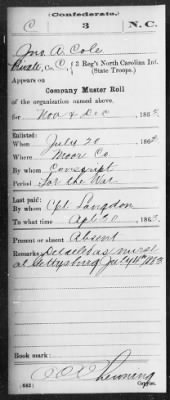 (Confederate.)
C 3 N.C.
Jno. A. Cole
Private, Co. C, 3 Reg't North Carolina Inf.
(State Troops.)
Appears on
Company Muster Roll
of the organization named above,
for Nov & Dec, 186
Enlisted:
When July 20, 186
Where Moore Co.
By whom Conscript
Period For the War
Last paid:
By whom Cpt Langdon
To what time Apl 30, 1863
Present or absent Absent
Remarks: Detailed as nurse
at Gettysburg July 4th 1863
Book mark:
(642) Copyist.